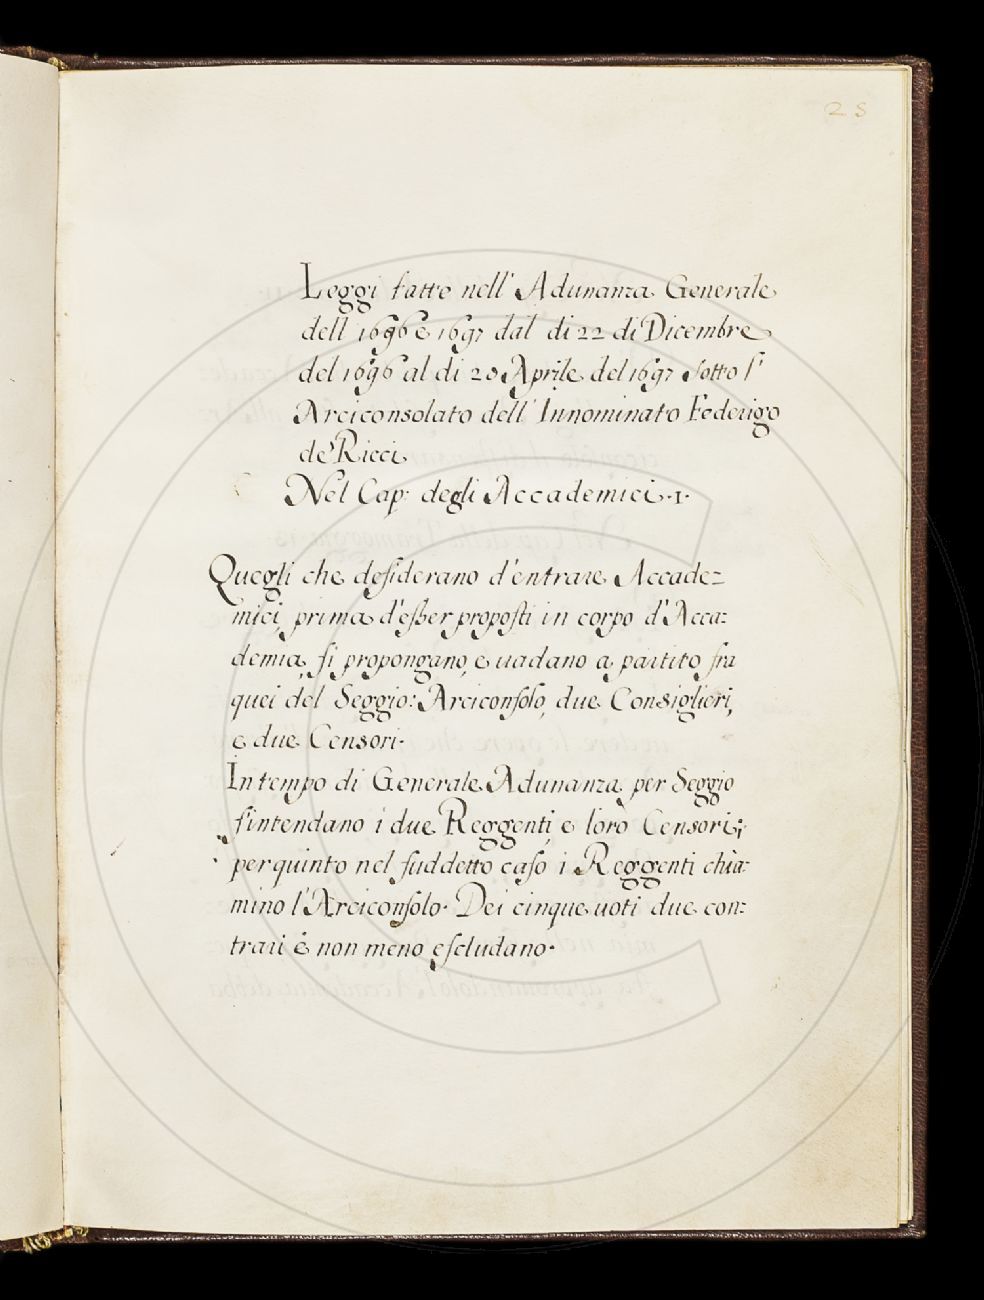 28
Leggi fatte nell' Adunanza Generale
dell 1696 e 1697 dal di 22 di Dicembre
del 1696 al di 28 Aprile del 1697 sotto l'
Arciconsolato dell' Innominato Federigo
de' Ricci
Nel Cap: degli Accademici · 1 ·
Quegli che desiderano d'entrare Accade=
mici, prima d'esser proposti in corpo d'Acca=
demia, si propongano, e uadano a partito fra
quei del Seggio: Arciconsolo, due Consiglieri,
e due Censori.
In tempo di Generale Adunanza per Seggio
s'intendano i due Reggenti, e loro Censori;
per quinto nel suddetto caso i Reggenti chia=
mino l'Arciconsolo. Dei cinque uoti due con=
trari e non meno escludano.